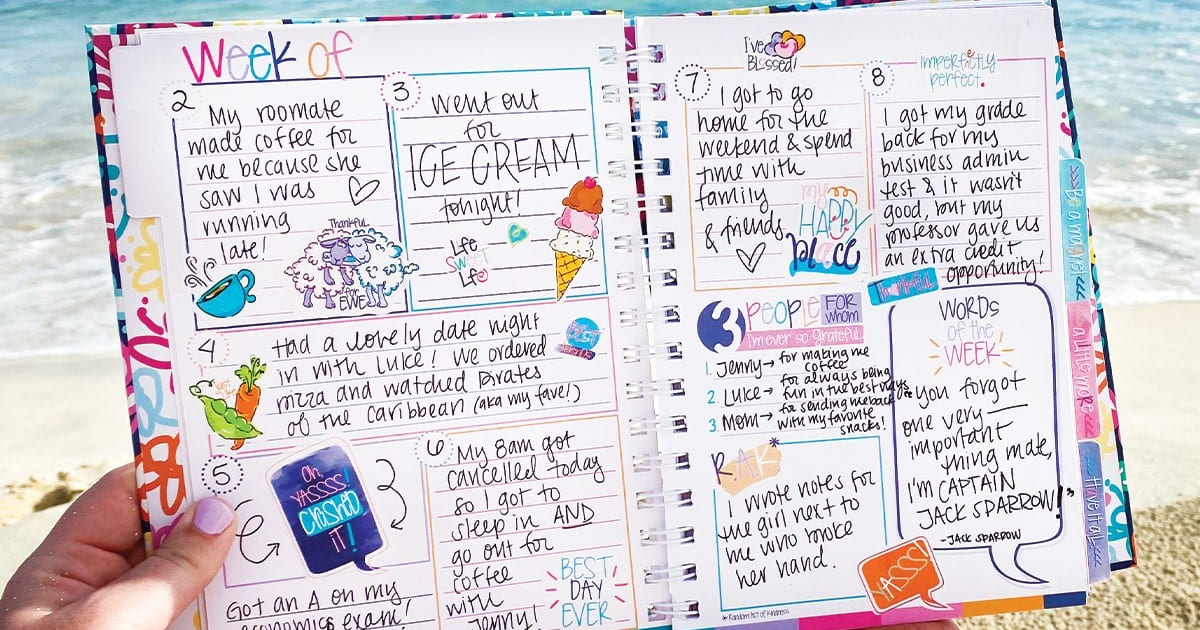 Week of
2
My roomate
made coffee for
me because she
saw I was
running
late!
Thankful
for
EWE
3
Went out
for
ICE CREAM
tonight!
Life
Sweet
Life
4
Had a lovely date night
in with Luke! We ordered
pizza and watched Pirates
of the Caribbean (aka my fave!)
Best
Friends
5
Oh,
YASSSS!
Crushed
IT!
Got an A on my
economics exam!
6
My 8am got
cancelled today
so I got to
sleep in AND
go out for
coffee
with
Jenny!
BEST
DAY
EVER
I've
Blessed!
7
I got to go
home for the
weekend & spend
time with
family
& friends
my
HAPPY
place
imperfectly
perfect.
8
I got my grade
back for my
business admin
test & it wasn't
good, but my
professor gave us
an extra credit
opportunity!
Thankful
3 PEOPLE FOR
whom
I'm ever so grateful
1. Jenny → for making me
coffee
2. Luke → for always being
fun in the best ways
3. Mom → for sending me back
with my favorite
snacks!
R.A.K*
I wrote notes for
the girl next to
me who broke
her hand.
YASSS!
*Random Act of Kindness
WORDS
of the
WEEK
"You forgot
one very
important
thing mate,
I'M CAPTAIN
JACK SPARROW!"
- JACK SPARROW
a little more